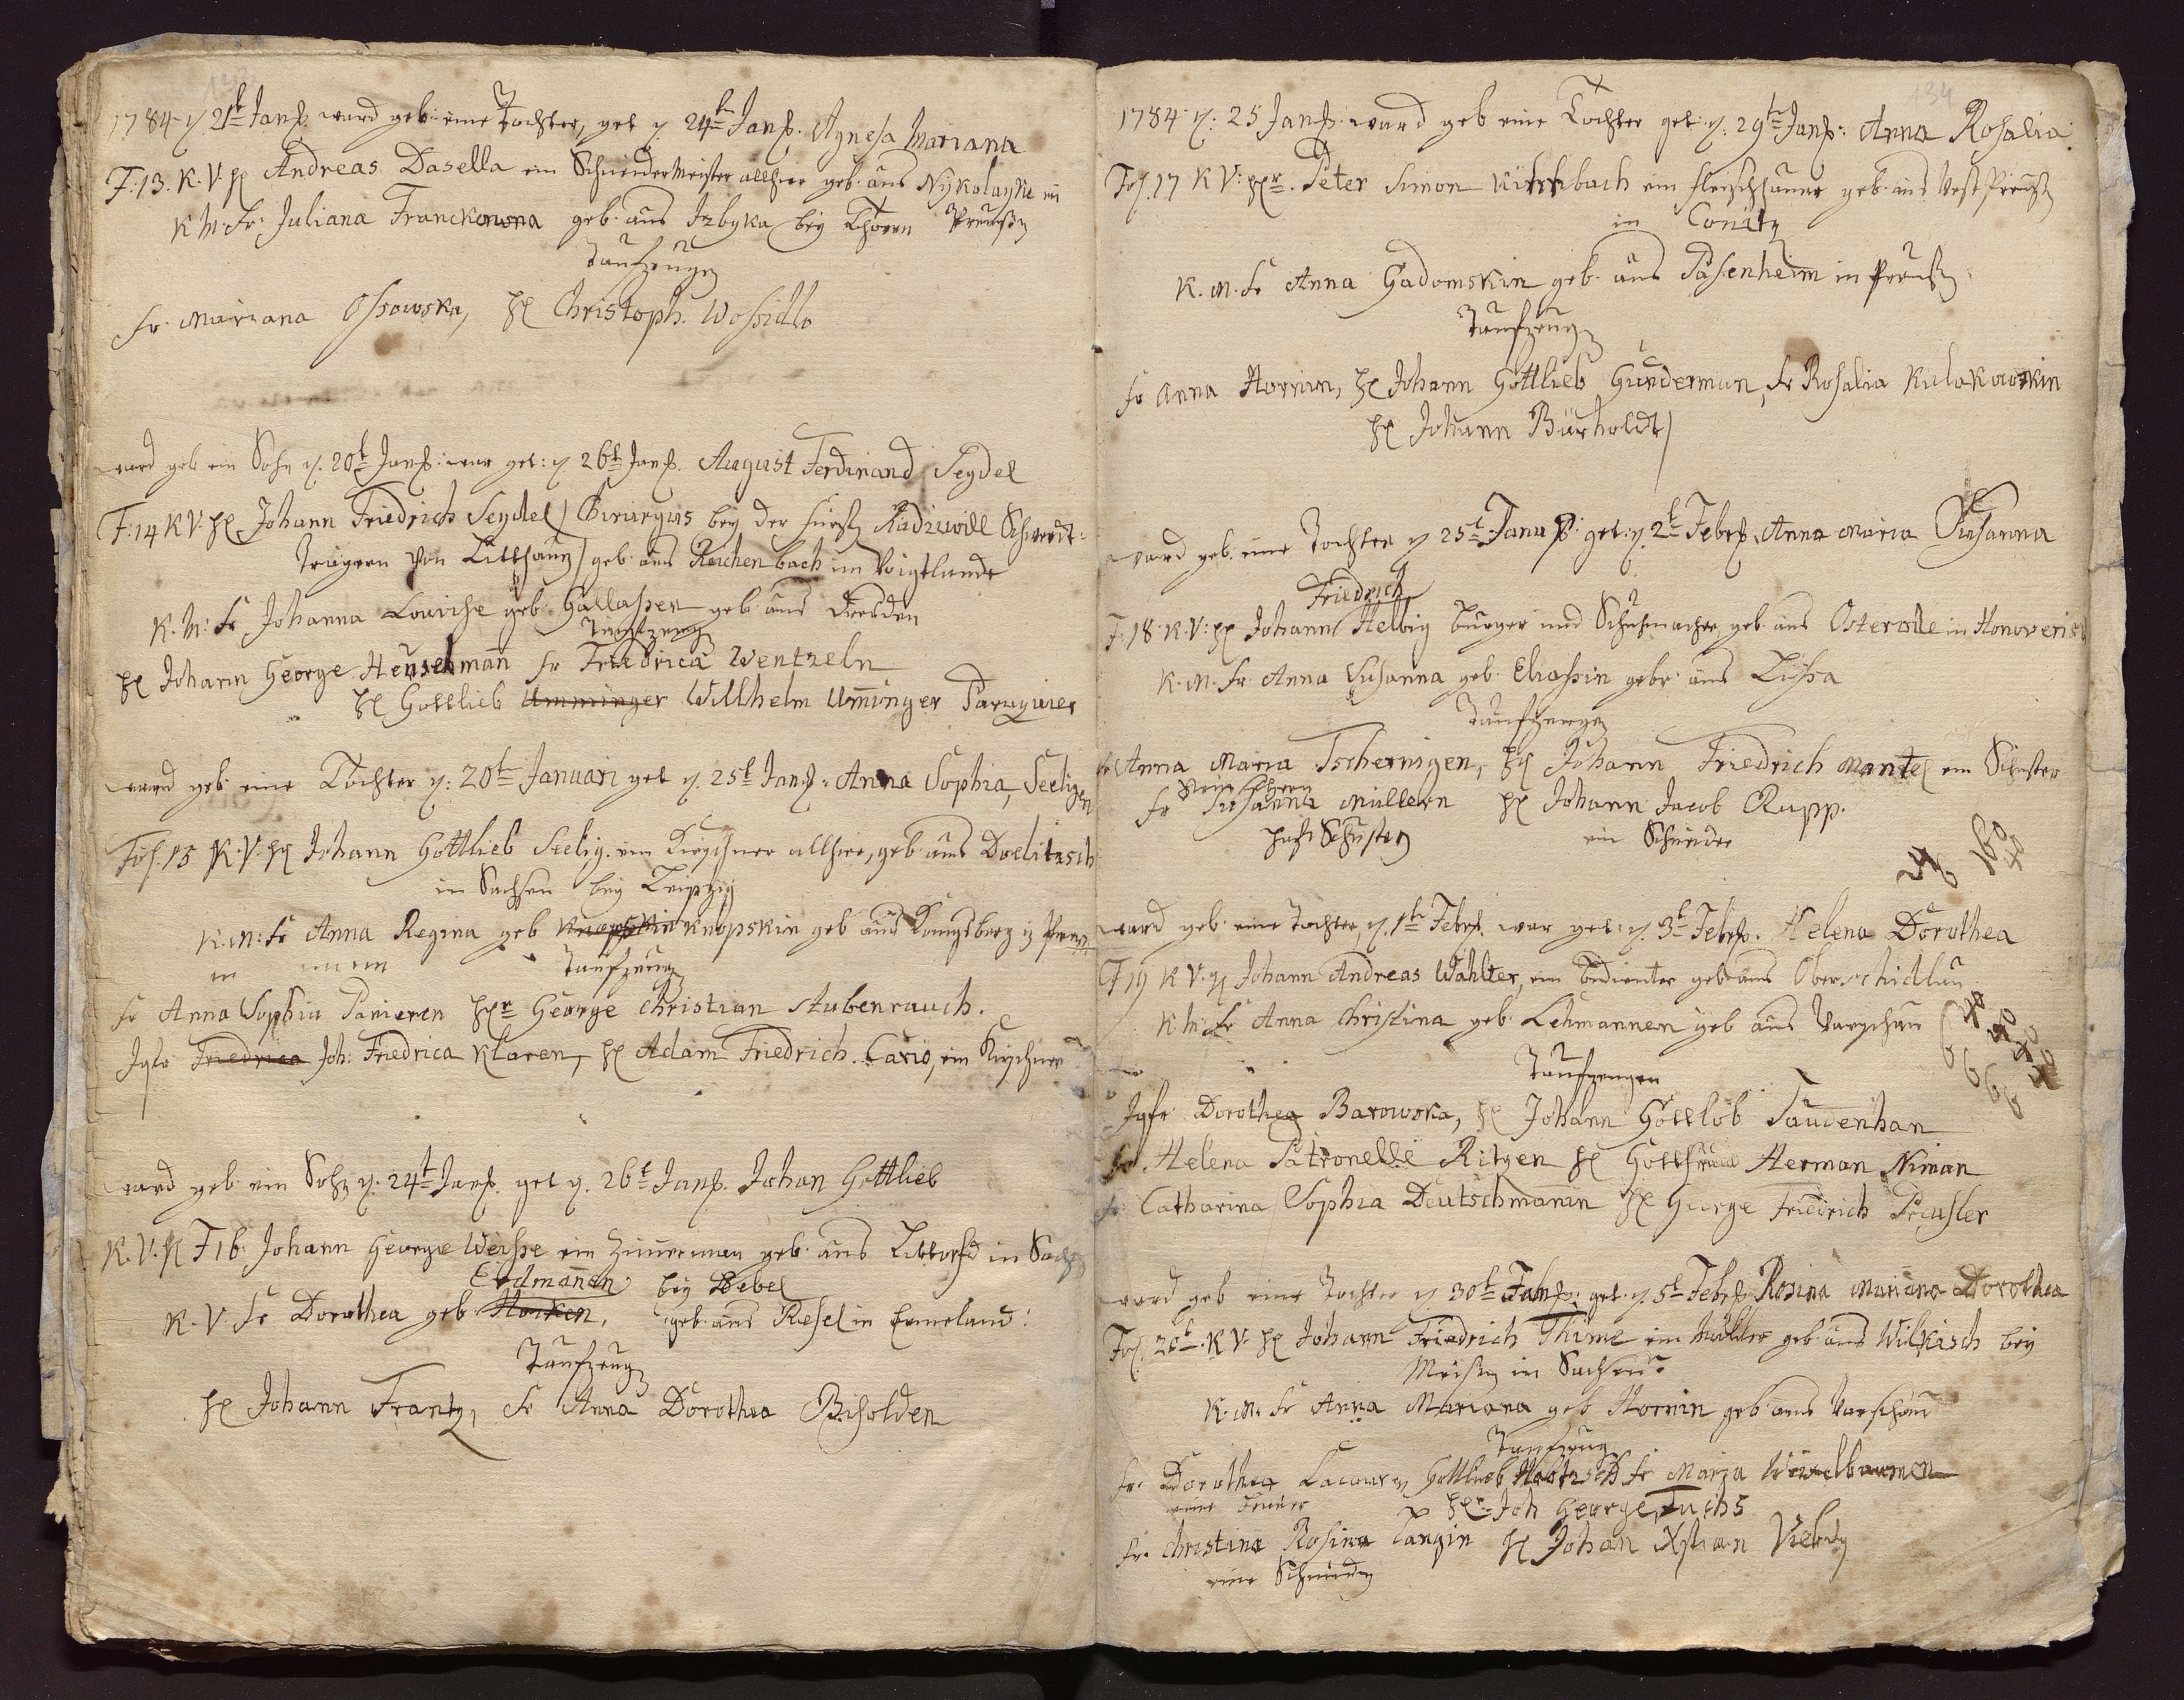 1784 d 21t Janß. ward geb: eine Tochter, get d 24t Janß. Agnesa Mariana
F:13. K. V. H Andreas Dasella ein Schneidermeister allhier geb. aus Nykolayke in
K M. Fr: Juliana Franckowna geb. aus Izbyka bey Thorn Preußen
Taufzeugen
Fr. Mariana Ossowska, H Christoph. Wossidlo
ward geb ein Sohn d. 20t Janß. war get: d 26t Janß. August Ferdinand Seydel
F:14 K V. H Johann Friedrich Seydel Cirurgus bey der Fürst Radziwill Schwerdt-
Trägern von Litthaun geb aus Reichenbach im Voigtlande
K. M: Fr Johanna Louisse geb. Gallassen geb aus Dresden
Taufzeug
H Johann George Heuselmañ Fr Friedrica Wentzeln
H Gottlieb Umminger Willhelm Um̃inger Paruquier
ward geb: eine Tochter d: 20t Januari get d. 25t Janß. Anna Sophia, Seeligen
Fol. 15 K. V. H Johann Gottlieb Seelig. ein Kirschner allhier, geb aus Doelitzsch
in Sachsen bey Leipzig
K. M: Fr Anna Regina geb Knopskin geb aus Königsberg in Preuß
Taufzeug
Fr Anna Sophia Panieren Hr George Christian Stubenrauch.
Jgfr Friedrica Joh: Friedrica Klaren, H Adam Friedrich. Cario, ein Kirschner
ward geb: ein Sohn d. 24t Janß. get d. 26t Janß. Johan Gottlieb
K. V. H F 16. Johann George Weisse ein Zim̃erman geb. aus Littorfd in Sachs
Erdmañen bey Debel
K. V. Fr Dorothea geb Horken, geb. aus Resel in Ermeland:
Taufzeug
H Johann Frantz, Fr Anna Dorothea Bisolden
134
1784 d: 25 Janß. ward geb eine Tochter get: d. 29t Janß: Anna Rosalia
Fol. 17 K V: Hr. Peter Simon Kirchbach ein Fleischhauer geb. aus West Preuß
in Conitz
K. M. Fr Anna Gadomskin geb. aus Pasenheim in Preuß
Taufzeug
Fr Anna Hornin, H Johann Gottlieb Gunderman, Fr Rosalia Kulakowskin
H Johann Bürholdt
ward geb. eine Tochter d 25t Janu ß. get. d. 2t Febrß. Anna Maria Susanna
Friedrich
F. 18. K. V: H Johann Helbig Bürger und Schuhmacher geb. aus Osterode in Honoveris
K. M. Fr. Anna Susanna geb. Eliassin gebr aus Lissa
Taufzeugen
Fr Anna Maria Tschernigen, H Johann Friedrich Mantel ein Schuster
Fr Susanna Müllern H Johann Jacob Rupp.
Schustern ein Schneider
ward geb. eine Tochter, d. 1t Febrß. war get: d. 3t Febrß. Helena Dorothea
F 19 K V. H Johann Andreas Wahlter, ein Bedienter geb aus Oberschidlau
K M: Fr Anna Christina geb. Lehmannen geb aus Warschau
Taufzeugen
Jgfr Dorothea Barowska, H Johann Gottlob Taudenhan
Fr. Helena Patronelle Ritzen H Gottfried Herman Niman
Fr. Catharina Sophia Deutschmanin H George Friedrich Preusler
ward geb eine Tochter d 30t Janß: get. d. 5t Febrß. Rosina Mariana Dorothea
Fol. 20t. K V. H Johann Friedrich Thime ein Müller geb aus Wilkisch bey
Meissen in Sachsen
K. M: Fr Anna Mariana geb Hornin geb aus Warschau
Taufzeug
Fr. Dorothea Gottlieb Fr Maria
Hr. Joh George, Fuchs
Fr. Christina Rosina Langin H Johan Xstian
eine Schneidern